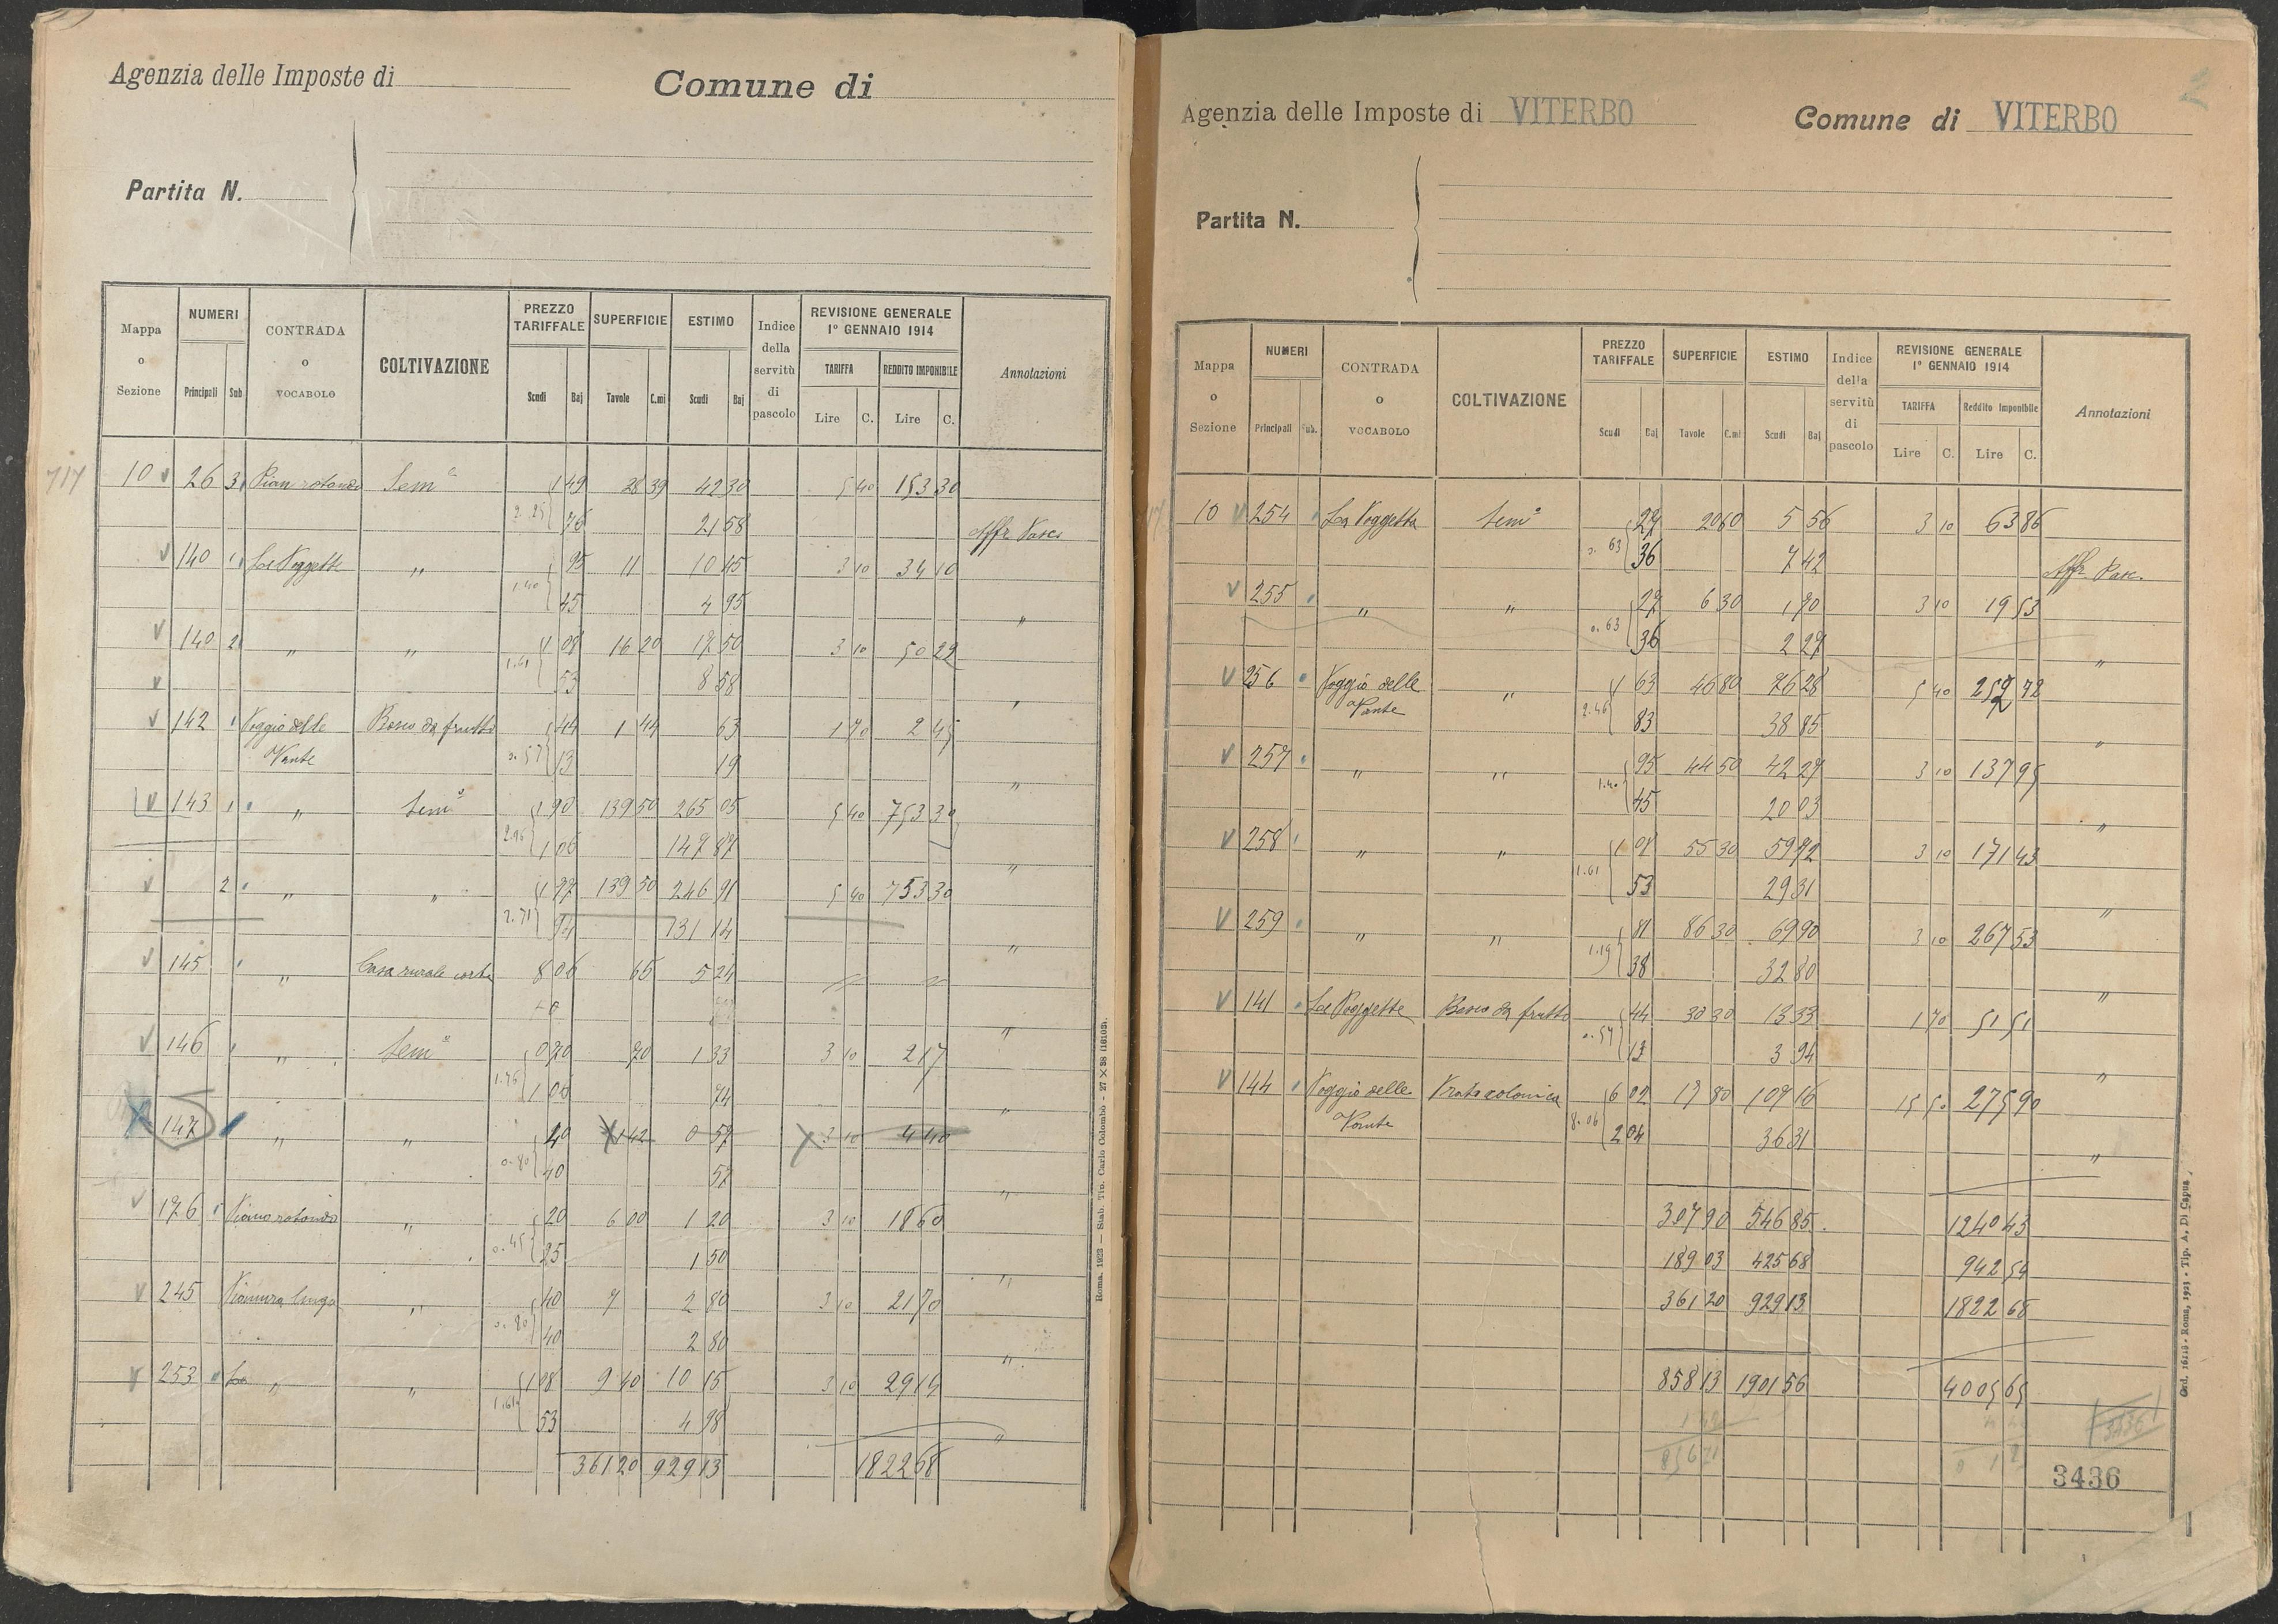 Agenzia delle Imposte di
Comune di
Partita N.
Mappa o Sezione
NUMERI
Principali Sub
CONTRADA o VOCABOLO
COLTIVAZIONE
PREZZO TARIFFALE
Scudi Baj
SUPERFICIE
Tavole C.mi
ESTIMO
Scudi Baj
Indice della servitù di pascolo
REVISIONE GENERALE 1º GENNAIO 1914
TARIFFA
Lire C.
REDDITO IMPONIBILE
Lire C.
Annotazioni
717 10 V 26 3 Pian rotondo Sem° 1 49 28 39 42 30 5 40 153 30
2.25 76 21 58 Affr. Pasc.
V 140 1 Le Poggette " 95 11 10 45 3 10 34 10
1.40 45 4 95 "
V 140 2 " " 1 08 16 20 17 50 3 10 50 22
1.61 53 8 58 "
V 142 Poggio delle Bosco da frutto 44 1 44 63 1 70 2 45
0.57 13 19 "
V 143 1 " Sem° 1 90 139 50 265 05 5 40 753 30
2.96 1 06 147 87 "
V 2 " " 1 77 139 50 246 91 5 40 753 30
2.71 94 131 14 "
V 145 " Casa rurale corte 8 06 65 5 24
"
V 146 " Sem° 0 70 70 1 33 3 10 2 17
1.76 1 06 74 "
X 147 " " 40 X 1 42 0 57 X 3 10 4 40
0.80 40 57 "
V 176 Piano rotondo " 20 6 00 1 20 3 10 18 60
0.45 25 1 50 "
V 245 Pianura lunga " 40 7 2 80 3 10 21 70
0.80 40 2 80 "
V 253 Le " " 1 08 9 40 10 15 3 10 29 14
1.61 53 4 98 "
361 20 929 13 1822 68
Roma. 1923 — Stab. Tip. Carlo Colombo - 27 × 38 (1610S).
Agenzia delle Imposte di VITERBO
Comune di VITERBO
Partita N.
Mappa o Sezione
NUMERI
Principali Sub.
CONTRADA o VOCABOLO
COLTIVAZIONE
PREZZO TARIFFALE
Scudi Baj
SUPERFICIE
Tavole C.mi
ESTIMO
Scudi Baj
Indice della servitù di pascolo
REVISIONE GENERALE 1º GENNAIO 1914
TARIFFA
Lire C.
Reddito Imponibile
Lire C.
Annotazioni
10 V 254 La Poggetta Sem° 27 20 60 5 56 3 10 63 86
0.63 36 7 42 Affr. Pasc.
V 255 " " 27 6 30 1 70 3 10 19 53
0.63 36 2 27 "
V 256 Poggio delle " 1 63 46 80 76 28 5 40 252 72
2.46 83 38 85 "
V 257 " " 95 44 50 42 27 3 10 137 95
1.40 45 20 03 "
V 258 " " 1 08 55 30 59 72 3 10 171 43
1.61 53 29 31 "
V 259 " " 81 86 30 69 90 3 10 267 53
1.19 38 32 80 "
V 141 Le Poggette Bosco da frutto 44 30 30 13 33 1 70 51 51
0.57 13 3 94 "
V 144 Poggio delle Prato colonica 6 02 17 80 107 16 15 50 275 90
8.06 2 04 36 31 "
307 90 546 85 1240 43
189 03 425 68 942 54
361 20 929 13 1822 68
858 13 1901 56 4005 65
3436
3436
Ord. 16113 - Roma, 1923 - Tip. A. Di Capua